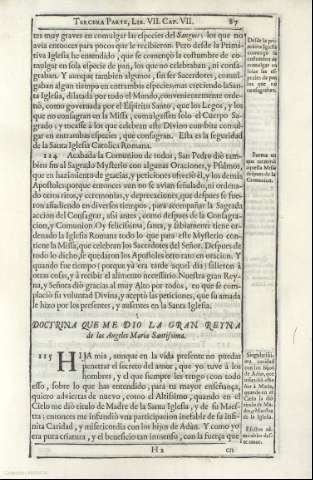 TERCERA PARTE, LIB. VII. CAP. VII. 87
tes muy graves en comulgar las especies del Sanguis los que no
avia entonces para pocos que le recibieron. Pero desde la Primi-
tiva Iglesia he entendido, que se començò la costumbre de co-
mulgar en sola especie de pan, los que no celebraban, ni consa-
graban. Y aunque tambien algunos, sin ser Sacerdotes, comul-
gaban algun tiempo en entrambas especies, mas creciendo la San-
ta Iglesia, dilatada por todo el Mundo, convenientemente orde-
nò, como governada por el Espiritu Santo, que los Legos, y los
que no consagran en la Missa, comulgassen solo el Cuerpo Sa-
grado, y tocasse à los que celebran este Divino combite comul-
gar en entrambas especies, que consagran. Esta es la seguridad
de la Santa Iglesia Catolica Romana.
Desde la pri-
mitiva Iglesia
començò la
costumbre de
comulgar en
solas las es-
pecies de pan
los que no
consagraban.
114 Acabada la Comunion de todos, San Pedro diò tam-
bien fin al Sagrado Mysterio con algunas Oraciones, y Psalmos,
que en hazimiento de gracias, y peticiones ofreciò èl, y los demàs
Apostoles, porque entonces aun no se avian señalado, ni ordena-
do otros ritos, y ceremonias, y deprecaciones, que despues se fue-
ron añadiendo en diversos tiempos, para acompañar la Sagrada
accion del Consagrar, assi antes, como despues de la Consagra-
cion, y Comunion. Oy felicissima, santa, y sabiamente tiene or-
denado la Iglesia Romana todo lo que para este Mysterio con-
tiene la Missa, que celebran los Sacerdotes del Señor. Despues de
todo lo dicho, se quedaron los Apostoles otro rato en oracion. Y
quando fue tiempo (porque yà era tarde aquel dia) salieron à
otras cosas, y à recibir el alimento necessario. Nuestra gran Rey-
na, y Señora diò gracias al muy Alto por todos, en que se com-
placiò su voluntad Divina, y aceptò las peticiones, que su amada
le hizo por los presentes, y ausentes en la Santa Iglesia.
Forma en
que
aquella Missa
despues de la
Comunion.
DOCTRINA QUE ME DIO LA GRAN REYNA
de los Angeles Maria Santissima.
115 HIJA mia, aunque en la vida presente no puedas
penetrar el secreto del amor, que yo tuve à los
hombres, y el que siempre les tengo; con todo
esso, sobre lo que has entendido, para tu mayor enseñança,
quiero adviertas de nuevo, como el Altissimo, quando en el
Cielo me diò titulo de Madre de la Santa Iglesia, y de su Maes-
tra; entonces me infundiò una participacion inefable de su Infi-
nita Caridad, y misericordia con los hijos de Adàn. Y como yo
era pura criatura, y el beneficio tan inmenso, con la fuerça que
caridad
con los hijos
de Adàn, que
quando en el
Cielo la diò
titulo de Ma-
dre, y Maestra
de la Iglesia.
H 2 en